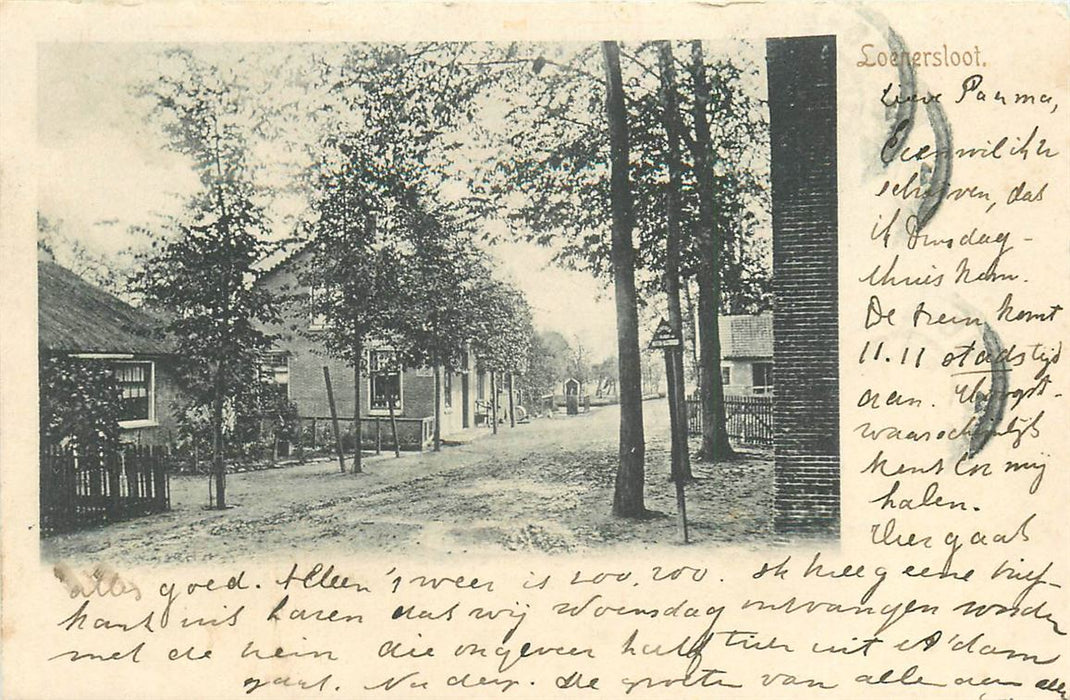 Loenersloot.
Lieve Pa en ma,
Even wil ik
schrijven, dat
ik Dinsdag-
thuis kom.
De trein komt
11.11 stadstijd
aan. Hoogst-
waarschijnlijk
kunt U mij
halen.
Hier gaat
alles goed. Alleen 't weer is zoo, zoo. Ik kreeg eene brief-
kaart uit Laren dat wij Woensdag ontvangen worden
met de trein die ongeveer half tien uit A'dam
gaat. Nu dag. De groeten van allen aan